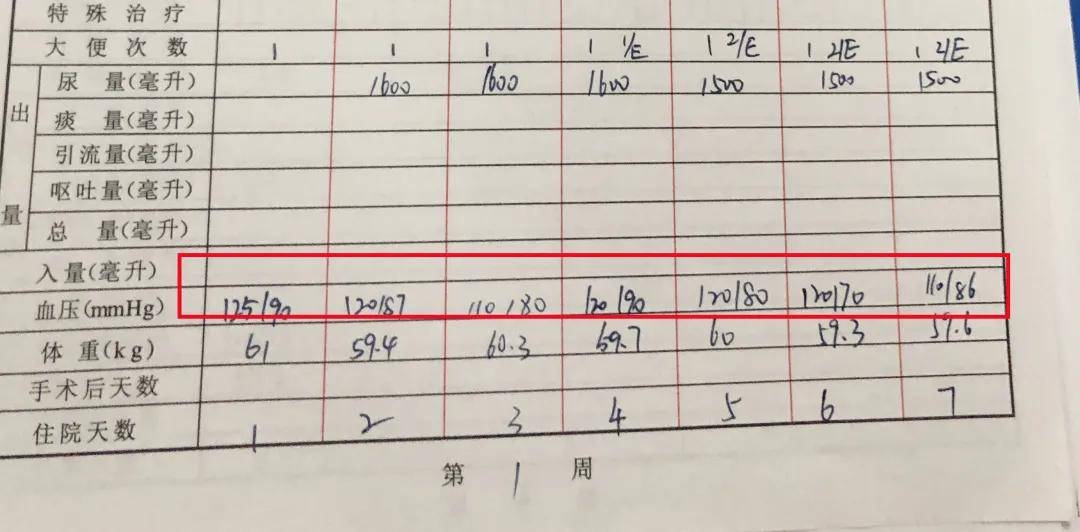 特殊治疗
大便次数 1 1 1 1 1/E 1 2/E 1 2/E 1 2/E
出量
尿 量(毫升) 1600 1600 1600 1500 1500 1500
痰 量(毫升)
引流量(毫升)
呕吐量(毫升)
总 量(毫升)
入量(毫升)
血压(mmHg) 125/90 120/87 110/80 120/90 120/80 120/70 110/86
体 重(kg) 61 59.4 60.3 59.7 60 59.3 59.6
手术后天数
住院天数 1 2 3 4 5 6 7
第 1 周